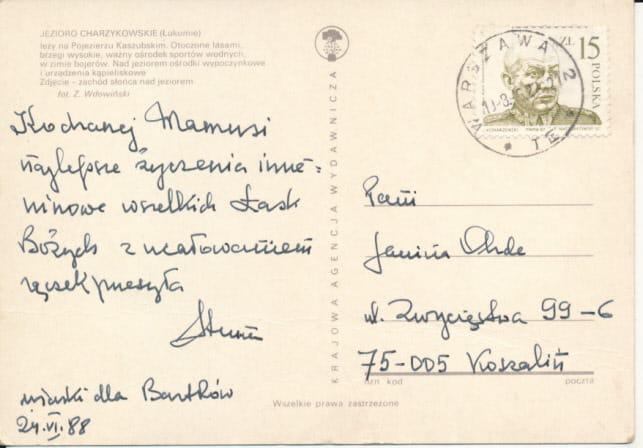 JEZIORO CHARZYKOWSKIE (Łukomie)
leży na Pojezierzu Kaszubskim. Otoczone lasami,
brzegi wysokie, ważny ośrodek sportów wodnych,
w zimie bojerów. Nad jeziorem ośrodki wypoczynkowe
i urządzenia kąpieliskowe
Zdjęcie - zachód słońca nad jeziorem
fot. Z. Wdowiński
Kochanej Mamusi
najlepsze życzenia imie-
ninowe wszelkich Łask
Bożych z ucałowaniem
rączek przesyła
dla Bartków
24.VI.88
KRAJOWA AGENCJA WYDAWNICZA
ZŁ 15
POLSKA
WARSZAWA 2
Pani
Janina
ul. Zwycięstwa 99-6
75-005 Koszalin
ozn kod poczta
Wszelkie prawa zastrzeżone